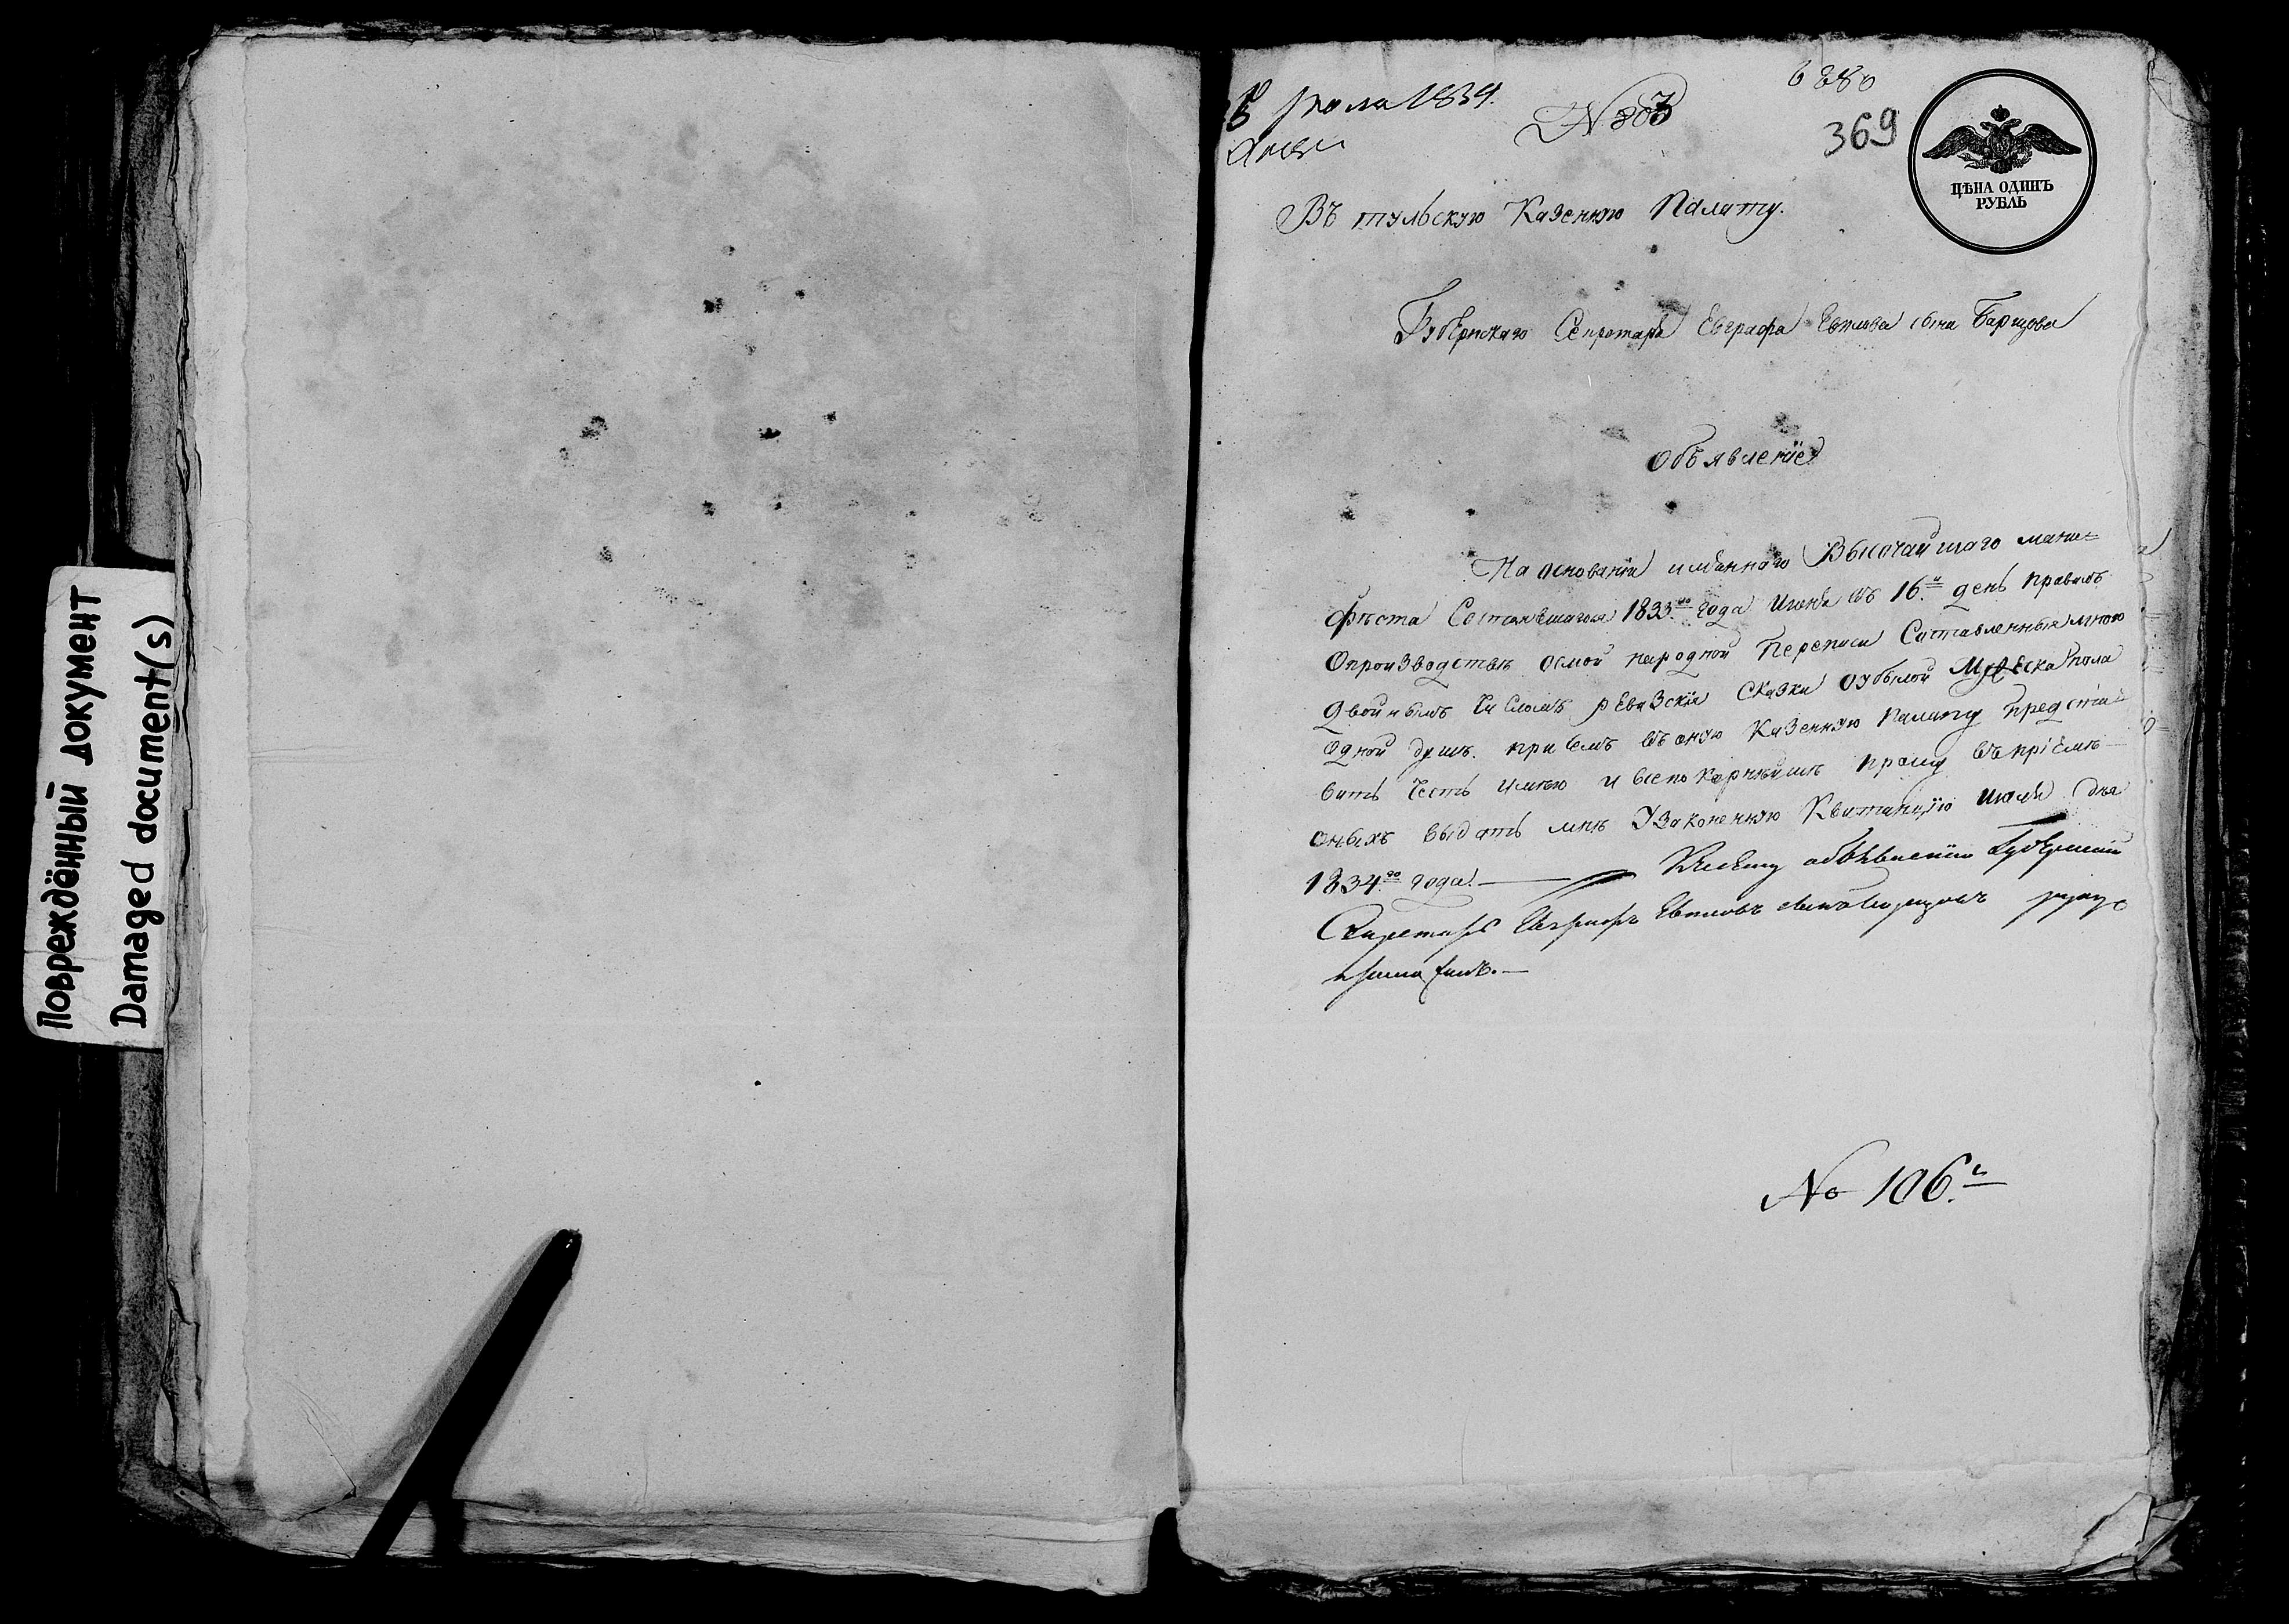 Повреждённый документ
Damaged document(s)
июля 1834.
№ 303
6280
369
ЦѢНА ОДИНЪ
РУБЛЬ
Въ тульскую Казенную Палату.
Губернскаго Секретаря Евграфа сына Барцова
Объявленіе
На основаніи имяннаго Высочайшаго мани=
феста Состоявшагося 1833го года Июня въ 16й день правилъ
Опроизводстве осмой народной Переписи Составленныя мною
двойнымъ Числомъ ревазскія Сказки Мужеска пола
одной душе при семъ въ оную Казенную палату предста
вить Честь имею и всепокорнейше прошу въ пріеме
оныхъ выдать мне Узаконенную Квитанцію июля дня
1834го года. — Ксему объявленію Губернский
Секретарь Евграфъ руку
приложилъ. —
№ 106й